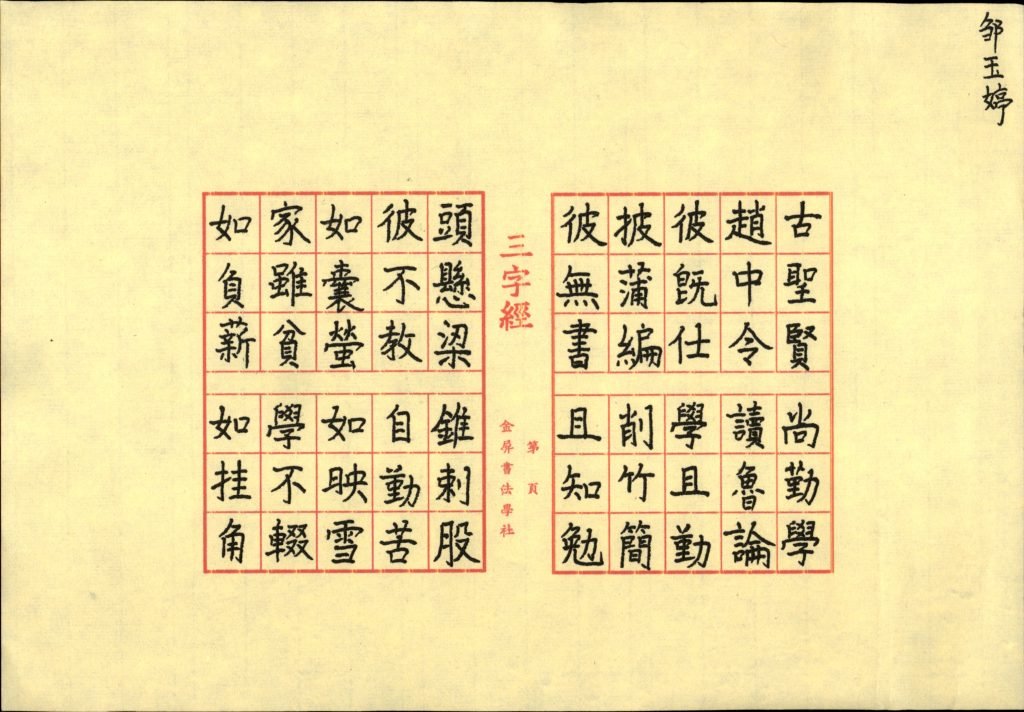 邹玉婷
古聖賢尚勤學
趙中令讀魯論
彼既仕學且勤
披蒲編削竹簡
彼無書且知勉
三字經
第 頁
金屏書法學社
頭懸梁錐刺股
彼不教自勤苦
如囊螢如映雪
家雖貧學不輟
如負薪如挂角